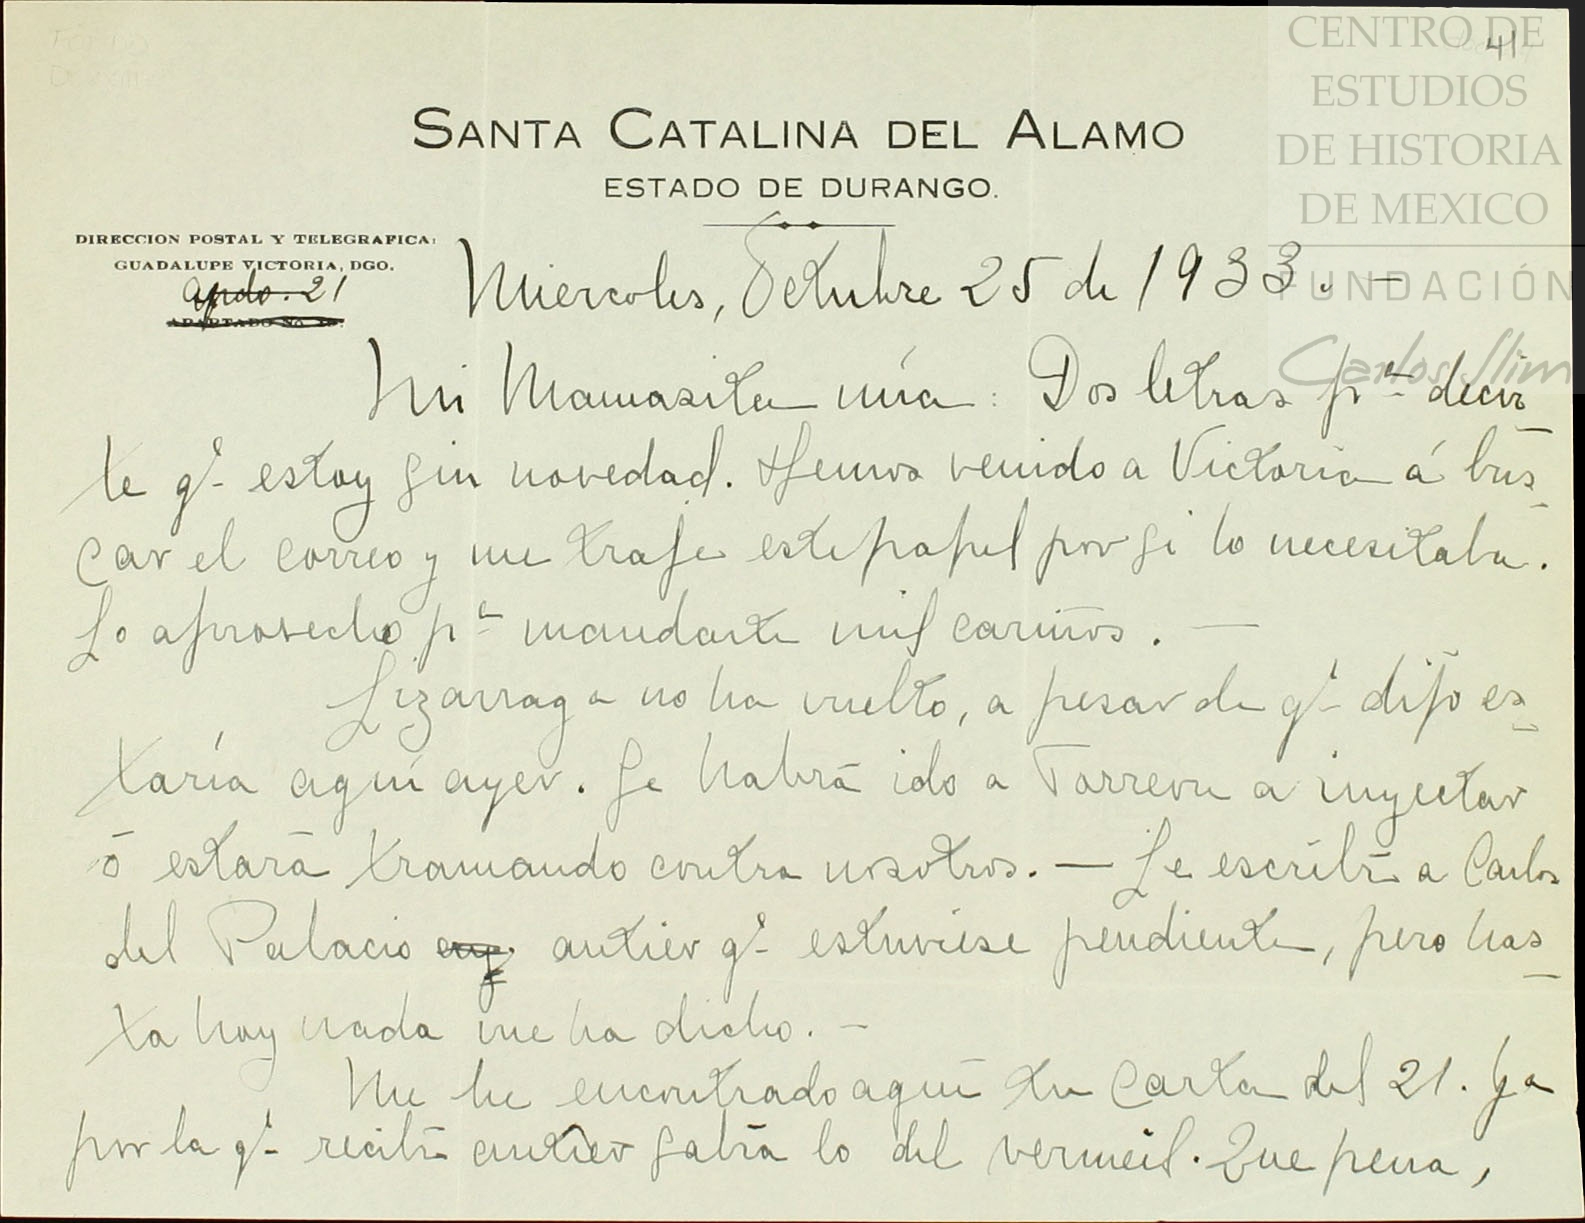 CENTRO DE
ESTUDIOS
DE HISTORIA
DE MEXICO
FUNDACIÓN
Carlos Slim
41
SANTA CATALINA DEL ALAMO
ESTADO DE DURANGO.
DIRECCION POSTAL Y TELEGRAFICA:
GUADALUPE VICTORIA, DGO.
Apdo. 21
APARTADO No.
Miercoles, Octubre 25 de 1933. —
Mi Mamasita mía: Dos letras pª decir
te qᵉ estoy sin novedad. Hemos venido a Victoria á bus-
car el correo y me traje este papel por si lo necesitaba.
Lo aprovecho pª mandarte mil cariños. —
Lizarraga no ha vuelto, a pesar de qᵉ dijo es-
taría aquí ayer. Se habrá ido a Torreon a inyectar
ó estará tramando contra nosotros. — Le escribí a Carlos
del Palacio antier qᵉ estuviese pendiente, pero has-
ta hoy nada me ha dicho. —
Me he encontrado aquí tu carta del 21. Ya
por la qᵉ recibí antier sabía lo del vermeil. Que pena,